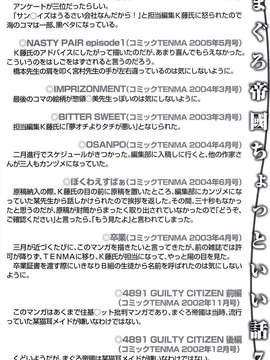 アンケートが三位だったらしい。
「サン◯イズはうるさい会社なんだから！」と担当編集K藤氏に怒られたので
海のコマは一部、黒ベタになっている。
◎NASTY PAIR episode1(コミックTENMA 2005年5月号)
K藤氏のアドバイスにしたがって描いたのだが、あまり喜んでもらえなかった。
こういうのをはしごをはずされると言うのだろう。
橋本先生の肩を叩く宮村先生の手が左右違っているのは気にしないように。
◎IMPRIZONMENT(コミックTENMA 2004年3月号)
◎BITTER SWEET(コミックTENMA 2003年3月号)
担当編集K藤氏に「夢オチよりタチが悪い」となじられた。
◎OSANPO(コミックTENMA 2004年4月号)
二月進行でスケジュールがきつかった。編集部に入稿しに行くと、他の作家さ
んが三人もカンヅメになっていた。
◎ぼくわえすぱぁ(コミックTENMA 2004年6月号)
原稿納入の際、K藤氏の目の前に原稿を置いたところ、編集部にカンヅメにな
っていた某先生から話しかけられたので挨拶を返した。その間、三十秒もなかっ
たと思うのだが、原稿が封筒からまったく取り出されていなかったので「どうぞ、
ご確認ください」と言ったら、「もう見たよ」と言われてしまった。
◎卒業(コミックTENMA 2003年4月号)
三月が近づくたびに、このマンガを描きたいと言ってきたが、前の雑誌では許
可が降りず、TENMAに移り、K藤氏が担当になって、やっと陽の目を見た。
卒業証書を渡す際にいきなりB組の生徒から名前を呼ばれたのは気にしない
ように。
◎4891 GUILTY CITIZEN 前編
(コミックTENMA 2002年11月号)
このマンガはあくまで佳基◯ット批判マンガであり、まぐろ帝國は当時、流行
っていた某猫耳メイドが嫌いなわけではない。
◎4891 GUILTY CITIZEN 後編
(コミックTENMA 2002年12月号)
くどいようだが、まぐろ帝國は某猫耳メイドが嫌いなわけではない。
まぐろ帝國ちょっといい話